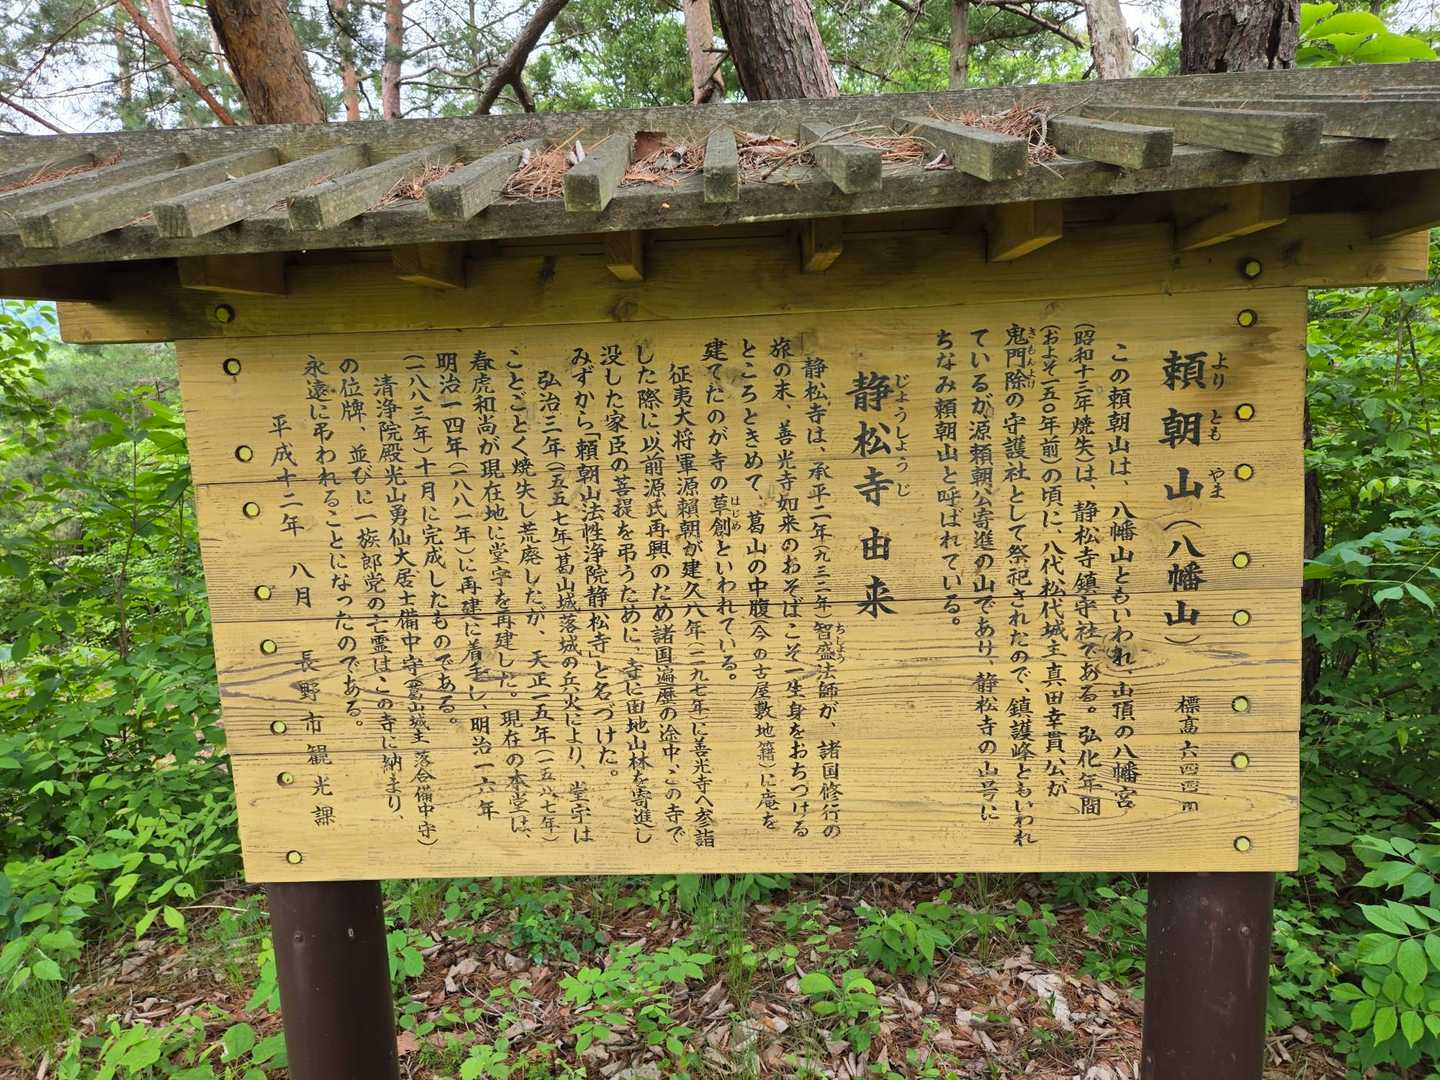 頼朝山(八幡山)
より とも やま
標高六四四m
この頼朝山は、八幡山ともいわれ、山頂の八幡宮
(昭和十三年焼失)は、静松寺鎮守社である。弘化年間
(およそ一五〇年前)の頃に、八代松代城主真田幸貫公が
鬼門除の守護社として祭祀されたので、鎮護峰ともいわれ
きもんよけ
ているが源頼朝公寄進の山であり、静松寺の山号に
ちなみ頼朝山と呼ばれている。
静松寺由来
じょうしょうじ
静松寺は、承平二年(九三二年)智盛法師が、諸国修行の
ちしょう
旅の末、善光寺如来のおそばこそ、生身をおちつける
ところときめて、葛山の中腹(今の古屋敷地籍)に庵を
建てたのが寺の草創といわれている。
はじめ
征夷大将軍源頼朝が建久八年(一一九七年)に善光寺へ参詣
した際に、以前源氏再興のため諸国遍歴の途中、この寺で
没した家臣の菩提を弔うために、寺に田地山林を寄進し
みずから「頼朝山法性浄院静松寺」と名づけた。
弘治三年(一五五七年)葛山城落城の兵火により、堂宇は
ことごとく焼失し荒廃したが、天正一五年(一五八七年)
春虎和尚が現在地に堂宇を再建した。現在の本堂は、
明治一四年(一八八一年)に再建に着手し、明治一六年
(一八八三年)十月に完成したものである。
清浄院殿光山勇仙大居士備中守(葛山城主 落合備中守)
の位牌、並びに一族郎党の亡霊は、この寺に納まり、
永遠に弔われることになったのである。
平成十二年 八月 長野市観光課